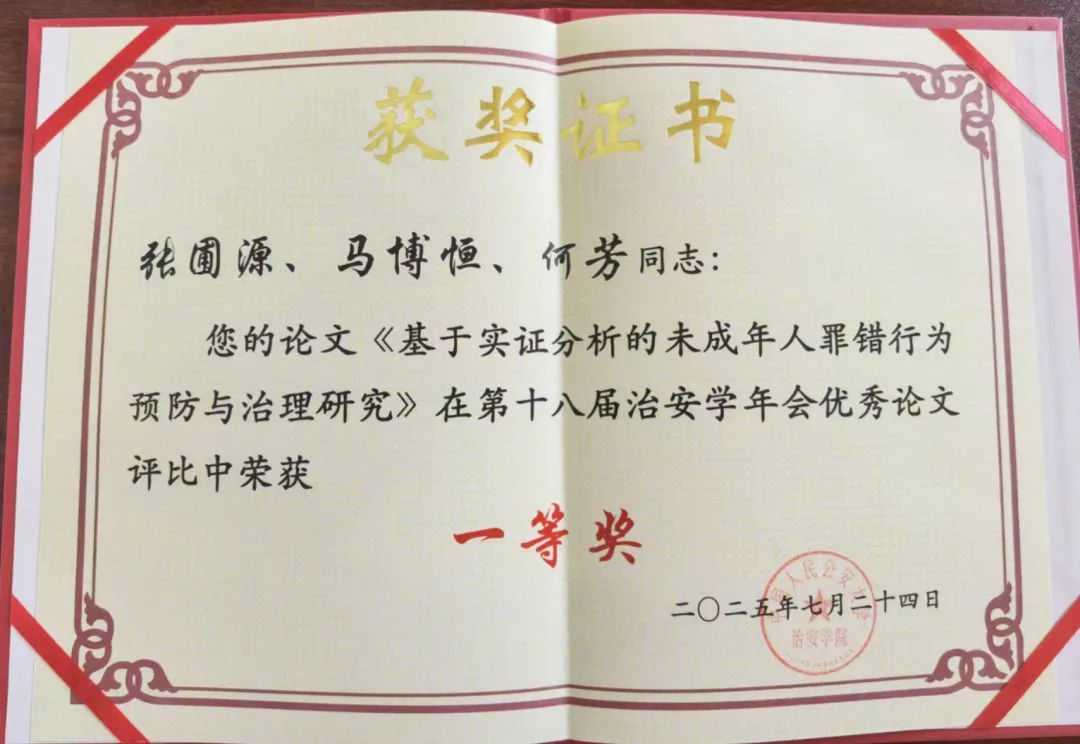 获奖证书
张圃源、马博恒、何芳同志：
您的论文《基于实证分析的未成年人罪错行为
预防与治理研究》在第十八届治安学年会优秀论文
评比中荣获
一等奖
二〇二五年七月二十四日
中国人民公安大学
治安学院